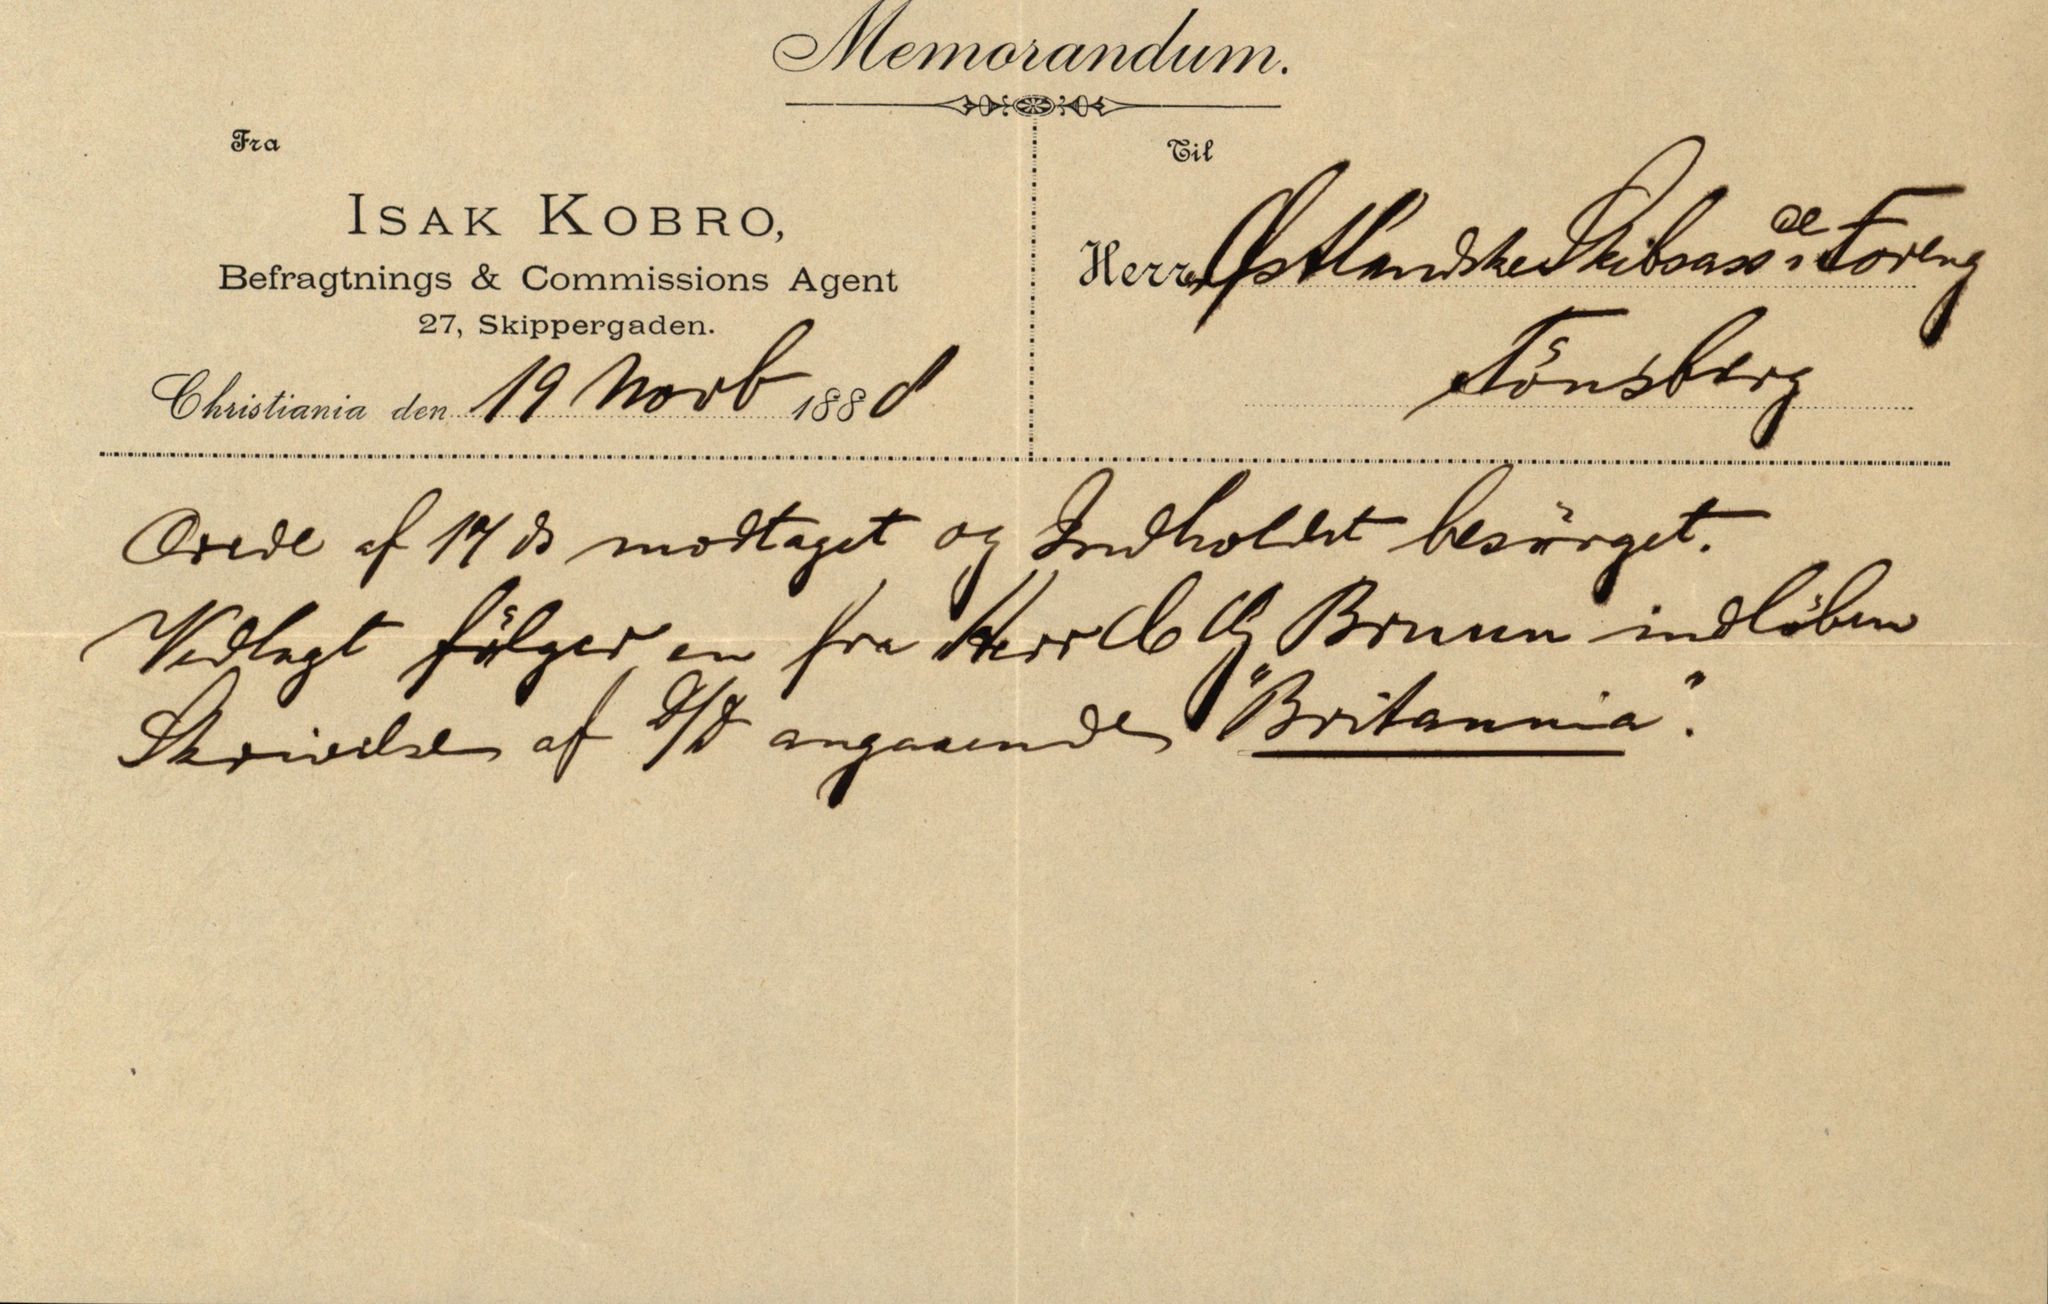 Memorandum.
Fra
Til
ISAK KOBRO,
Befragtnings & Commissions Agent
27, Skippergaden.
Christiania den 19 Novb 1888
Herr Østlandske Skibsass. Foreng
Tönsberg
Ærede af 17 ds modtaget og Indholdet besörget.
Vedlagt fölger en fra Herr C G Bruun indlöben
Skrivelse af D/D angaaende "Britannia".